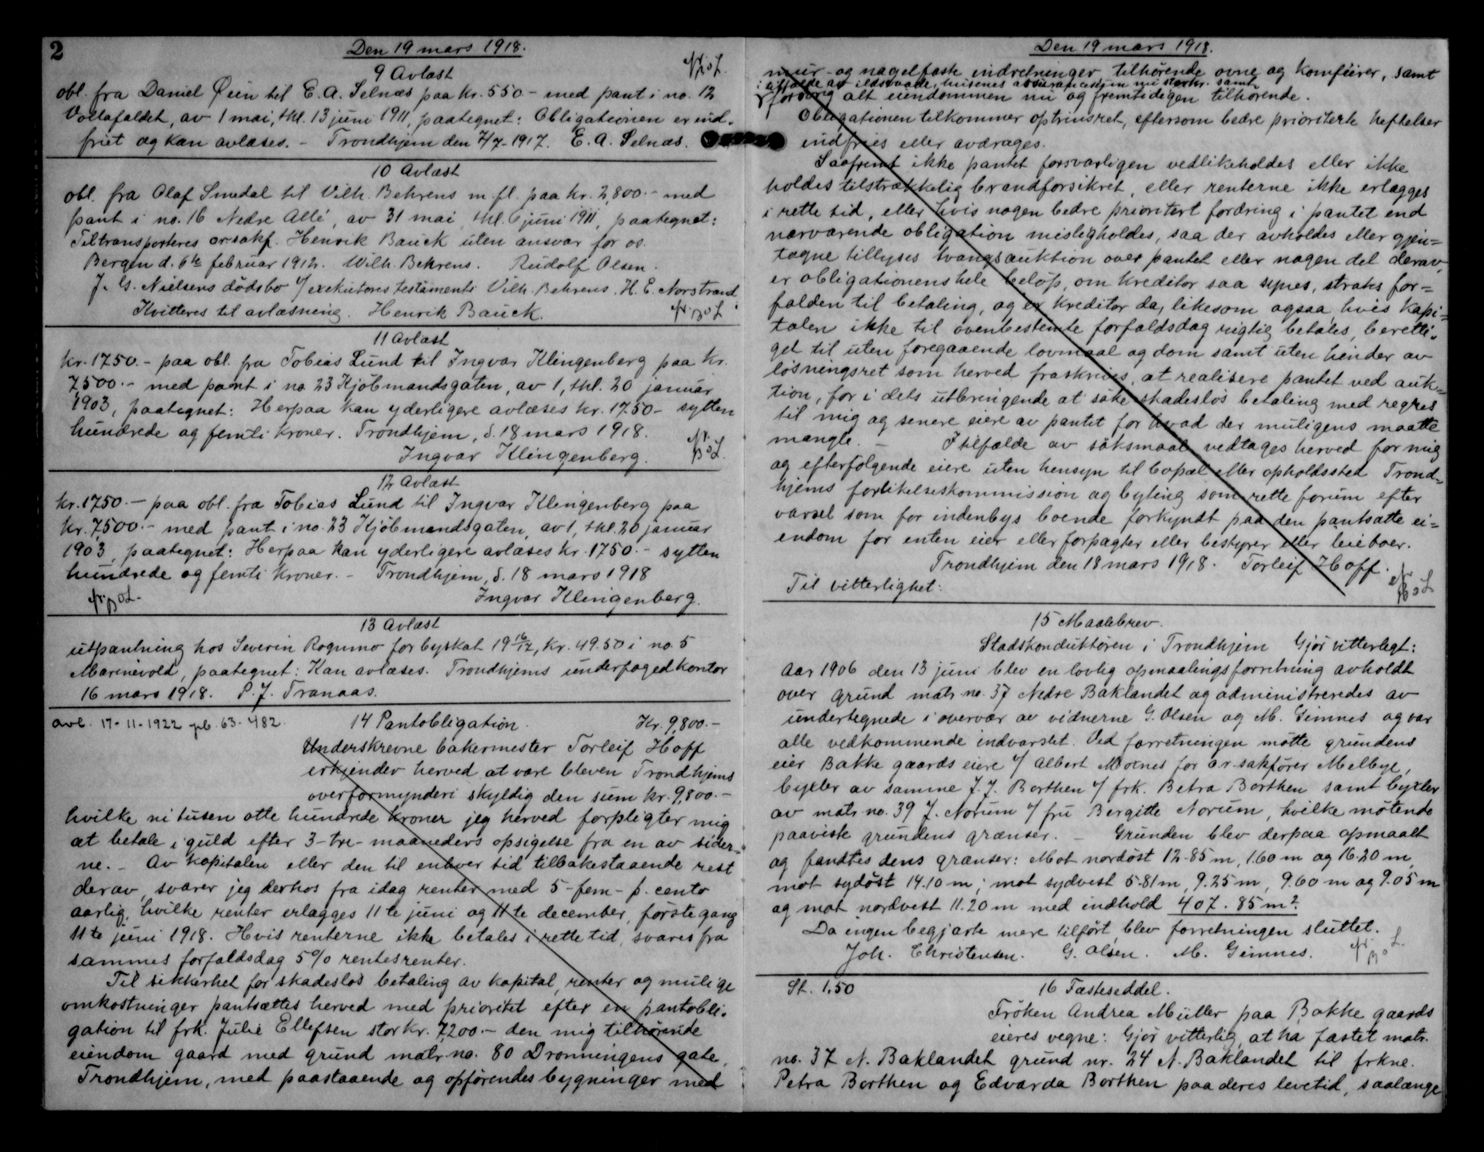 2
Den 19 mars 1918.
9 Avlæst
obl. fra Daniel Øien til E. A. Selnæs paa kr. 550 - med pant i no. 12
Vollafaldet, av 1 mai, thl. 13 juni 1911, paategnet: Obligationen er ind-
friet og kan avlæses. - Trondhjem den 7/7 1917. E. A. Selnæs.
10 Avlæst
obl. fra Olaf Smedal til Vilh. Behrens m. fl. paa kr. 2,800.- med
pant i no. 16 Nedre Allé, av 31 mai, thl. 6 juni 1911, paategnet:
Tiltransporteres orsakf. Henrik Bauck uten ansvar for os.
Bergen d. 6te februar 1912. Wilh. Behrens. Rudolf Olsen.
J. G. Nielsens dödsbo v/ executores testamenti Vilh. Behrens. H. E. Norstrand
Kvitteres til avlæsning. Henrik Bauck.
11 Avlæst
kr. 1750.- paa obl. fra Tobias Lund til Ingvar Klingenberg paa kr.
7500.- med pant i no 23 Kjöbmandsgaten, av 1, thl. 20 januar
1903, paategnet: Herpaa kan yderligere avlæses kr. 1750.- sytten
hundrede og femti kroner. Trondhjem, d. 18 mars 1918.
Ingvar Klingenberg.
12 Avlæst
kr. 1750.- paa obl. fra Tobias Lund til Ingvar Klingenberg paa
kr. 7,500.- med pant i no. 23 Kjöbmandsgaten, av 1, thl. 20 januar
1903, paategnet: Herpaa kan yderligere avlæses kr. 1750.- sytten
hundrede og femti kroner. - Trondhjem, d. 18 mars 1918
Ingvar Klingenberg.
13 Avlæst
utpantning hos Severin Rognmo for byskat 19 16/17, kr. 49.50 i no 5
Marinevold, paategnet: Kan avlæses. Trondhjems underfogedkontor
16 mars 1918. P. J. Tranaas.
avl. 17-11-1922 pb. 63-482.
14 Pantobligation. Kr. 9,800.-
Underskrevne bakermester Torleif Hoff
erkjender herved at være bleven Trondhjems
overformynderi skyldig den sum kr. 9,800.-
hvilke ni tusen otte hundrede kroner jeg herved forpligter mig
at betale i guld efter 3-tre-maaneders opsigelse fra en av sider-
ne. - Av kapitalen eller den til enhver tid tilbakestaaende rest
derav, svarer jeg derhos fra idag renter med 5-fem- p. cento
aarlig, hvilke renter erlægges 11te juni og 11te december, förste gang
11te juni 1918. Hvis renterne ikke betales i rette tid, svares fra
sammes forfaldsdag 5% rentesrenter.
Til sikkerhet for skadeslös betaling av kapital, renter og mulige
omkostninger pantsættes herved med prioritet efter en pantobli-
gation til frk. Julie Ellefsen stor kr. 7200.- den mig tilhörende
eiendom gaard med grund matr. no. 80 Dronningens gate,
Trondhjem, med paastaaende og opförendes bygninger med
Den 19 mars 1918.
mur- og nagelfaste indretninger tilhörende ovne og komfürer, samt
i tilfælde av ildsvaade, husenes assurancesum mi störke. samt
forövrig alt eiendommen nu og fremtidigen tilhörende.
Obligationen tilkommer optrinsret, eftersom bedre prioriterte heftelser
indfries eller avdrages.
Saafremt ikke pantet forsvarligen vedlikeholdes eller ikke
holdes tilstrækkelig brandforsikret, eller renterne ikke erlægges
i rette tid, eller hvis nogen bedre prioritert fordring i pantet end
nærværende obligation misligholdes, saa der avholdes eller gjen-
tagne tillyses tvangsauktion over pantet eller nogen del derav,
er obligationens hele belöp, om kreditor saa synes, straks for-
falden til betaling, og er kreditor da, likesom ogsaa, hvis kapi-
talen ikke til ovenbestemte forfaldsdag rigtig betales, beretti-
get til uten foregaaende lovmaal og dom samt uten hinder av
lösningsret som herved fraskrives, at realisere pantet ved auk-
tion, for i dets utbringende at söke skadeslös betaling med regres
til mig og senere eiere av pantet for hvad der muligens maatte
mangle. - I tilfælde av söksmaal vedtages herved for mig
og efterfölgende eiere uten hensyn til bopæl eller opholdssted Trond-
hjems forlikelseskommission og byting som rette forum efter
varsel som for indenbys boende forkyndt paa den pantsatte ei-
endom for enten eier eller forpagter eller bestyrer eller leieboer.
Trondhjem den 18 mars 1918. Torleif Hoff.
Til vitterlighet:
15 Maalebrev.
Stadskonduktören i Trondhjem Gjör vitterlegt:
Aar 1906 den 13 juni blev en lovlig opmaalingsforretning avholdt
over grund matr. no. 37 Nedre Baklandet og administreredes av
undertegnede i overvær av vidnerne G. Olsen og M. Gimnes og var
alle vedkommende indvarslet. Ved forretningen mötte grundens
eier Bakke gaards eiere v/ Albert Moenes for o.r.sakförer Melbye,
byxler av samme J. J. Borthen v/ frk. Petra Borthen samt byxler
av matr. no. 39 J. Norum v/ fru Bergitte Norum, hvilke mötende
paaviste grundens grænser. - Grunden blev derpaa opmaalt
og fandtes dens grænser: Mot nordöst 12.85 m, 1.60 m og 16.20 m,
mot sydöst 14.10 m; mot sydvest 5.81 m, 9.25 m, 9.60 m og 9.05 m
og mot nordvest 11.20 m med indhold 407.85 m².
Da ingen begjærte mere tilfört blev forretningen sluttet.
Joh. Christensen. G. Olsen. M. Gimnes.
St. 1.50
16 Fæsteseddel.
Fröken Andrea Müller paa Bakke gaards
eieres vegne: Gjör vitterlig, at ha fæstet matr.
no. 37 N. Baklandet grund nr. 24 N. Baklandet til frkne.
Petra Borthen og Edvarda Borthen paa deres levetid, saalænge